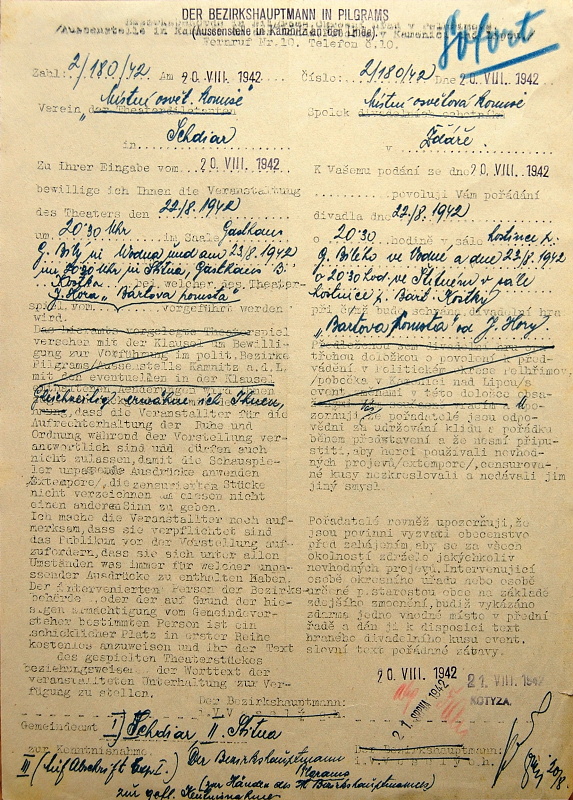 DER BEZIRKSHAUPTMANN IN PILGRAMS
(Aussenstelle in Kamnitz an der Linde).
Fernruf Nr.10. Telefon č.10.
Sofort
Zahl: 2/180/42 Am 20. VIII. 1942
Verein der Theaterdilettanten
Schdiar
in
Zu Ihrer Eingabe vom 20. VIII. 1942
bewillige ich Ihnen die Veranstaltung
des Theaters den 22/8. 1942
um 20 30 Uhr im Saale Gasthaus
G. Bílý in Wodna und am 23/8 1942
um 20 30 Uhr in Stitna, Gasthaus B.
Kostka bei welcher das Theater-
J. Hora "Bartova pomsta"
spiel vom vorgeführt werden
wird.
Das hieramts vorgelegte Theaterspiel
versehen mit der Klausel um Bewilli-
gung zur Vorführung im polit. Bezirke
Pilgrams/Aussenstelle Kamnitz a.d.L.
mit den eventuellen in der Klausel
Gleichzeitig erwähne ich Ihnen,
dass die Veranstallter für die
Aufrechterhaltung der Ruhe und
Ordnung während der Vorstellung ver-
antwortlich sind und dürfen auch
nicht zulassen, damit die Schauspie-
ler unpassende Ausdrücke anwenden
/Extempore/, die zensurierten Stücke
nicht verzeichnen um diesen nicht
einen anderen Sinn zu geben.
Ich mache die Veranstallter noch auf-
merksam, dass sie verpflichtet sind
das Publikum vor der Vorstellung auf-
zufordern, dass sie sich unter allen
Umständen was immer für welcher unpa-
ssender Ausdrücke zu enthalten haben.
Der intervenierten Person der Bezirks-
behörde oder der auf Grund der hie-
sigen Ermächtigung vom Gemeindevor-
steher bestimmten Person ist ein
schicklicher Platz in erster Reihe
kostenlos anzuweisen und ihr der Text
des gespielten Theaterstückes
beziehungsweise der Worttext der
veranstalteten Unterhaltung zur Ver-
fügung zu stellen.
Der Bezirkshauptmann:
Gemeindeamt I) Schdiar II. Stitna
zur Kenntnisnahme.
III) Der Bezirkshauptmann
Pilgrams
(zur Händen des H Bezirkshauptmannes)
zur gefl. Kenntnisnahme
číslo: 2/180/42 Dne 20. VIII. 1942
Místní osvětová komise
Spolek divadelních ochotníků
v Zdáře.
K Vašemu podání ze dne 20. VIII. 1942
povoluji Vám pořádání
divadla dne 22/8. 1942
o 20 30 hodině v sále hostince p.
G. Bílého ve Vodné a dne 23/8 1942
o 20 30 hod. ve Štítném v sále
hostince p. Bart. Kostky
při čemž bude sehrána divadelní hra
"Bartova pomsta" od J. Hory
třenou doložkou o povolení k před-
vádění v Politickém okrese Pelhřimov,
/pobočka v Kamenici nad Lipou/s
event. změnami v této doložce obsa-
zornuji, že pořadatelé jsou odpo-
vědni za udržování klidu a pořádku
během představení a že nesmí připu-
stiti, aby herci používali nevhod-
ných projevů/extempore/, censurova-
né kusy nezkreslovali a nedávali jim
jiný smysl.
Pořadatelé rovněž upozorňuji, že
jsou povinni vyzvati obecenstvo
před zahájením, aby se za všech
okolností zdrželo jakýchkoliv
nevhodných projevů. Intervenující
osobě okresního úřadu nebo osobě
určené p. starostou obce na základě
zdejšího zmocnění, budiž vykázáno
zdarma jedno vhodné místo v přední
řadě a dán jí k disposici text
hraného divadelního kusu event.
slovní text pořádané zábavy.
20 VIII. 1942
21. VIII. 1942
KOTYZA.
21. SRPNA 1942
Der Bezirkshauptmann: